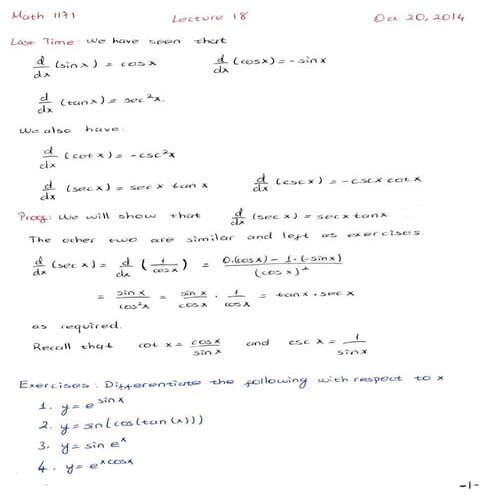 Math 1171 Lecture 18 Oct 20, 2014
Last Time: We have seen that
d/dx (sinx) = cosx d/dx (cosx) = -sinx
d/dx (tanx) = sec²x.
We also have:
d/dx (cotx) = -csc²x
d/dx (secx) = secx tanx d/dx (cscx) = -cscx cotx
Proof: We will show that d/dx (secx) = secx tanx
The other two are similar and left as exercises.
d/dx (secx) = d/dx (1/cosx) = 0.(cosx) - 1.(-sinx)/(cosx)²
= sinx/cos²x = sinx/cosx · 1/cosx = tanx · secx
as required.
Recall that cotx = cosx/sinx and cscx = 1/sinx
Exercises: Differentiate the following with respect to x
1. y = e^sinx
2. y = sin(cos(tan(x)))
3. y = sin e^x
4. y = e^xcosx
-1-